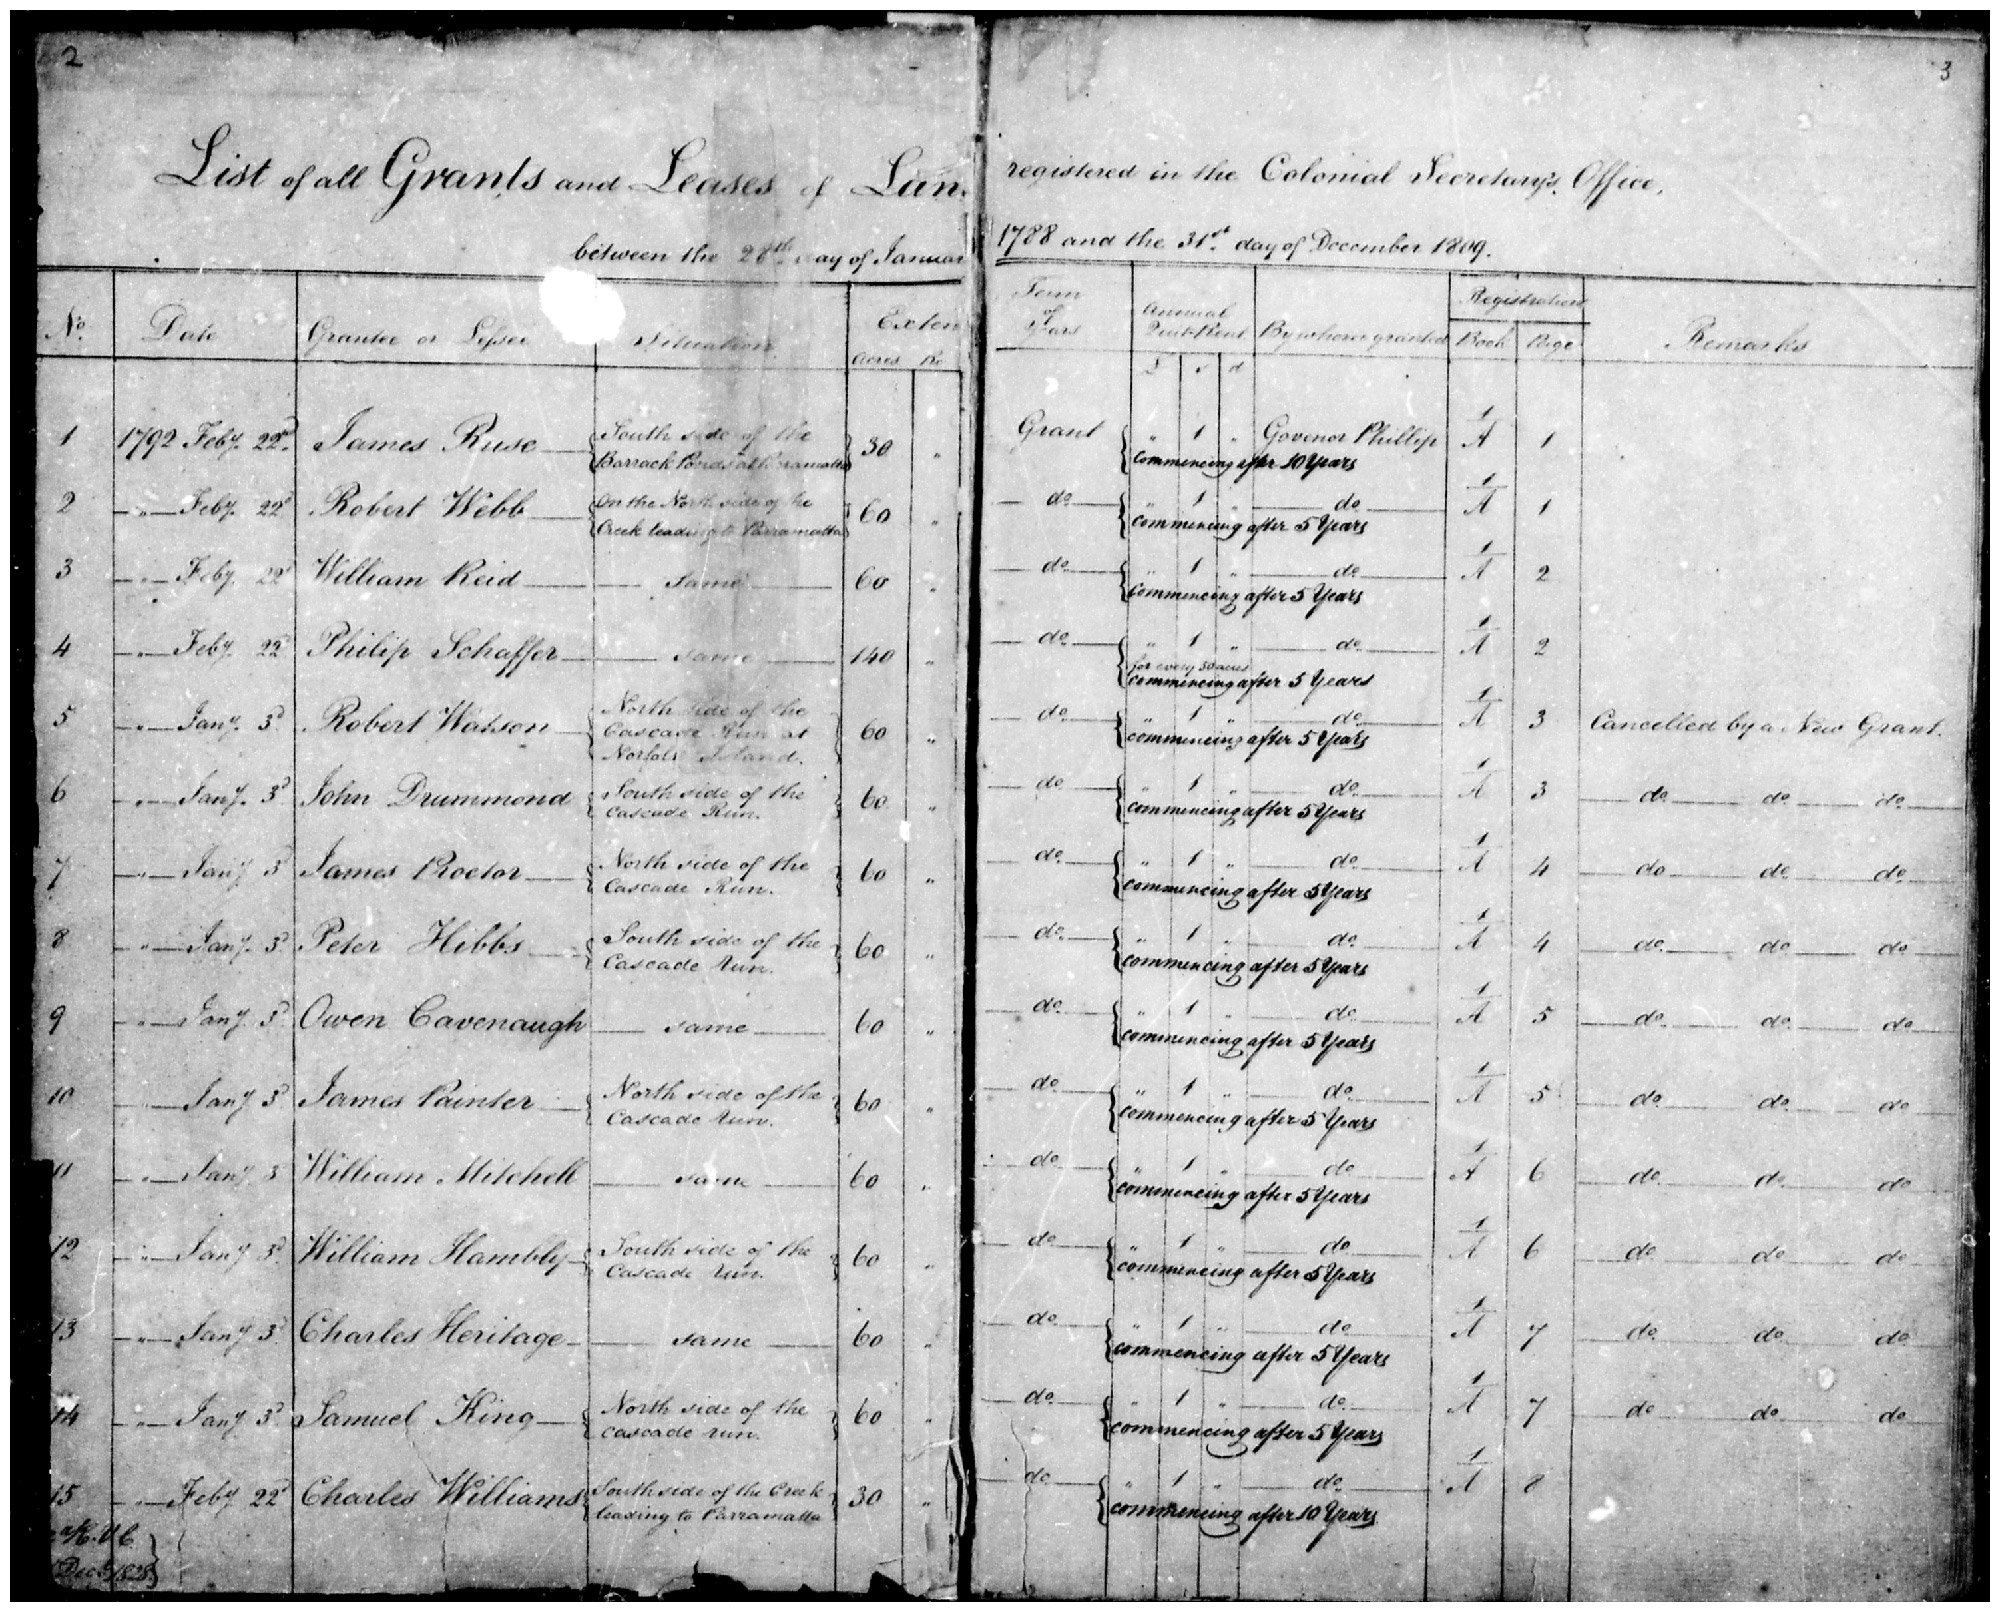 2
3
List of all Grants and Leases of Lan
registered in the Colonial Secretary's Office,
between the 28th day of Januar
1788 and the 31st day of December 1809.
No. Date Grantee or Lessee Situation Exten Term of Years Annual Quit-Rent By whom granted Registration Remarks
Acres Ro £ s d Book Page
1 1792 Feby. 22d. James Ruse South side of the 30 " Grant " 1 " Govenor Phillip 1/A 1
Barrack Ponds at Parramatta commencing after 10 Years
2 " Feby. 22d Robert Webb On the North side of the 60 " do " 1 " do 1/A 1
Creek leading to Parramatta commencing after 5 Years
3 " Feby. 22d William Reid same 60 " do " 1 " do 1/A 2
commencing after 5 Years
4 " Feby. 22d Philip Schaffer same 140 " do " 1 " do 1/A 2
for every 50 acres
commencing after 5 Years
5 " Jany. 3d Robert Watson North side of the 60 " do " 1 " do 1/A 3 Cancelled by a New Grant.
Cascade Run at commencing after 5 Years
Norfolk Island.
6 " Jany. 3d John Drummond South side of the 60 " do " 1 " do 1/A 3 do do do
Cascade Run. commencing after 5 Years
7 " Jany 3d James Proctor North side of the 60 " do " 1 " do 1/A 4 do do do
Cascade Run. commencing after 5 Years
8 " Jany. 3d Peter Hibbs South side of the 60 " do " 1 " do 1/A 4 do do do
Cascade run. commencing after 5 Years
9 " Jany. 3d Owen Cavenaugh same 60 " do " 1 " do 1/A 5 do do do
commencing after 5 Years
10 " Jany 3d James Painter North side of the 60 " do " 1 " do 1/A 5 do do do
Cascade run. commencing after 5 Years
11 " Jany 3 William Mitchell same 60 " do " 1 " do 1/A 6 do do do
commencing after 5 Years
12 " Jany 3d William Hambly South side of the 60 " do " 1 " do 1/A 6 do do do
Cascade run. commencing after 5 Years
13 " Jany 3d Charles Heritage same 60 " do " 1 " do 1/A 7 do do do
commencing after 5 Years
14 " Jany 3d Samuel King North side of the 60 " do " 1 " do 1/A 7 do do do
cascade run. commencing after 5 Years
15 " Feby 22d Charles Williams South side of the Creek 30 " do " 1 " do 1/A 8
leading to Parramatta commencing after 10 Years